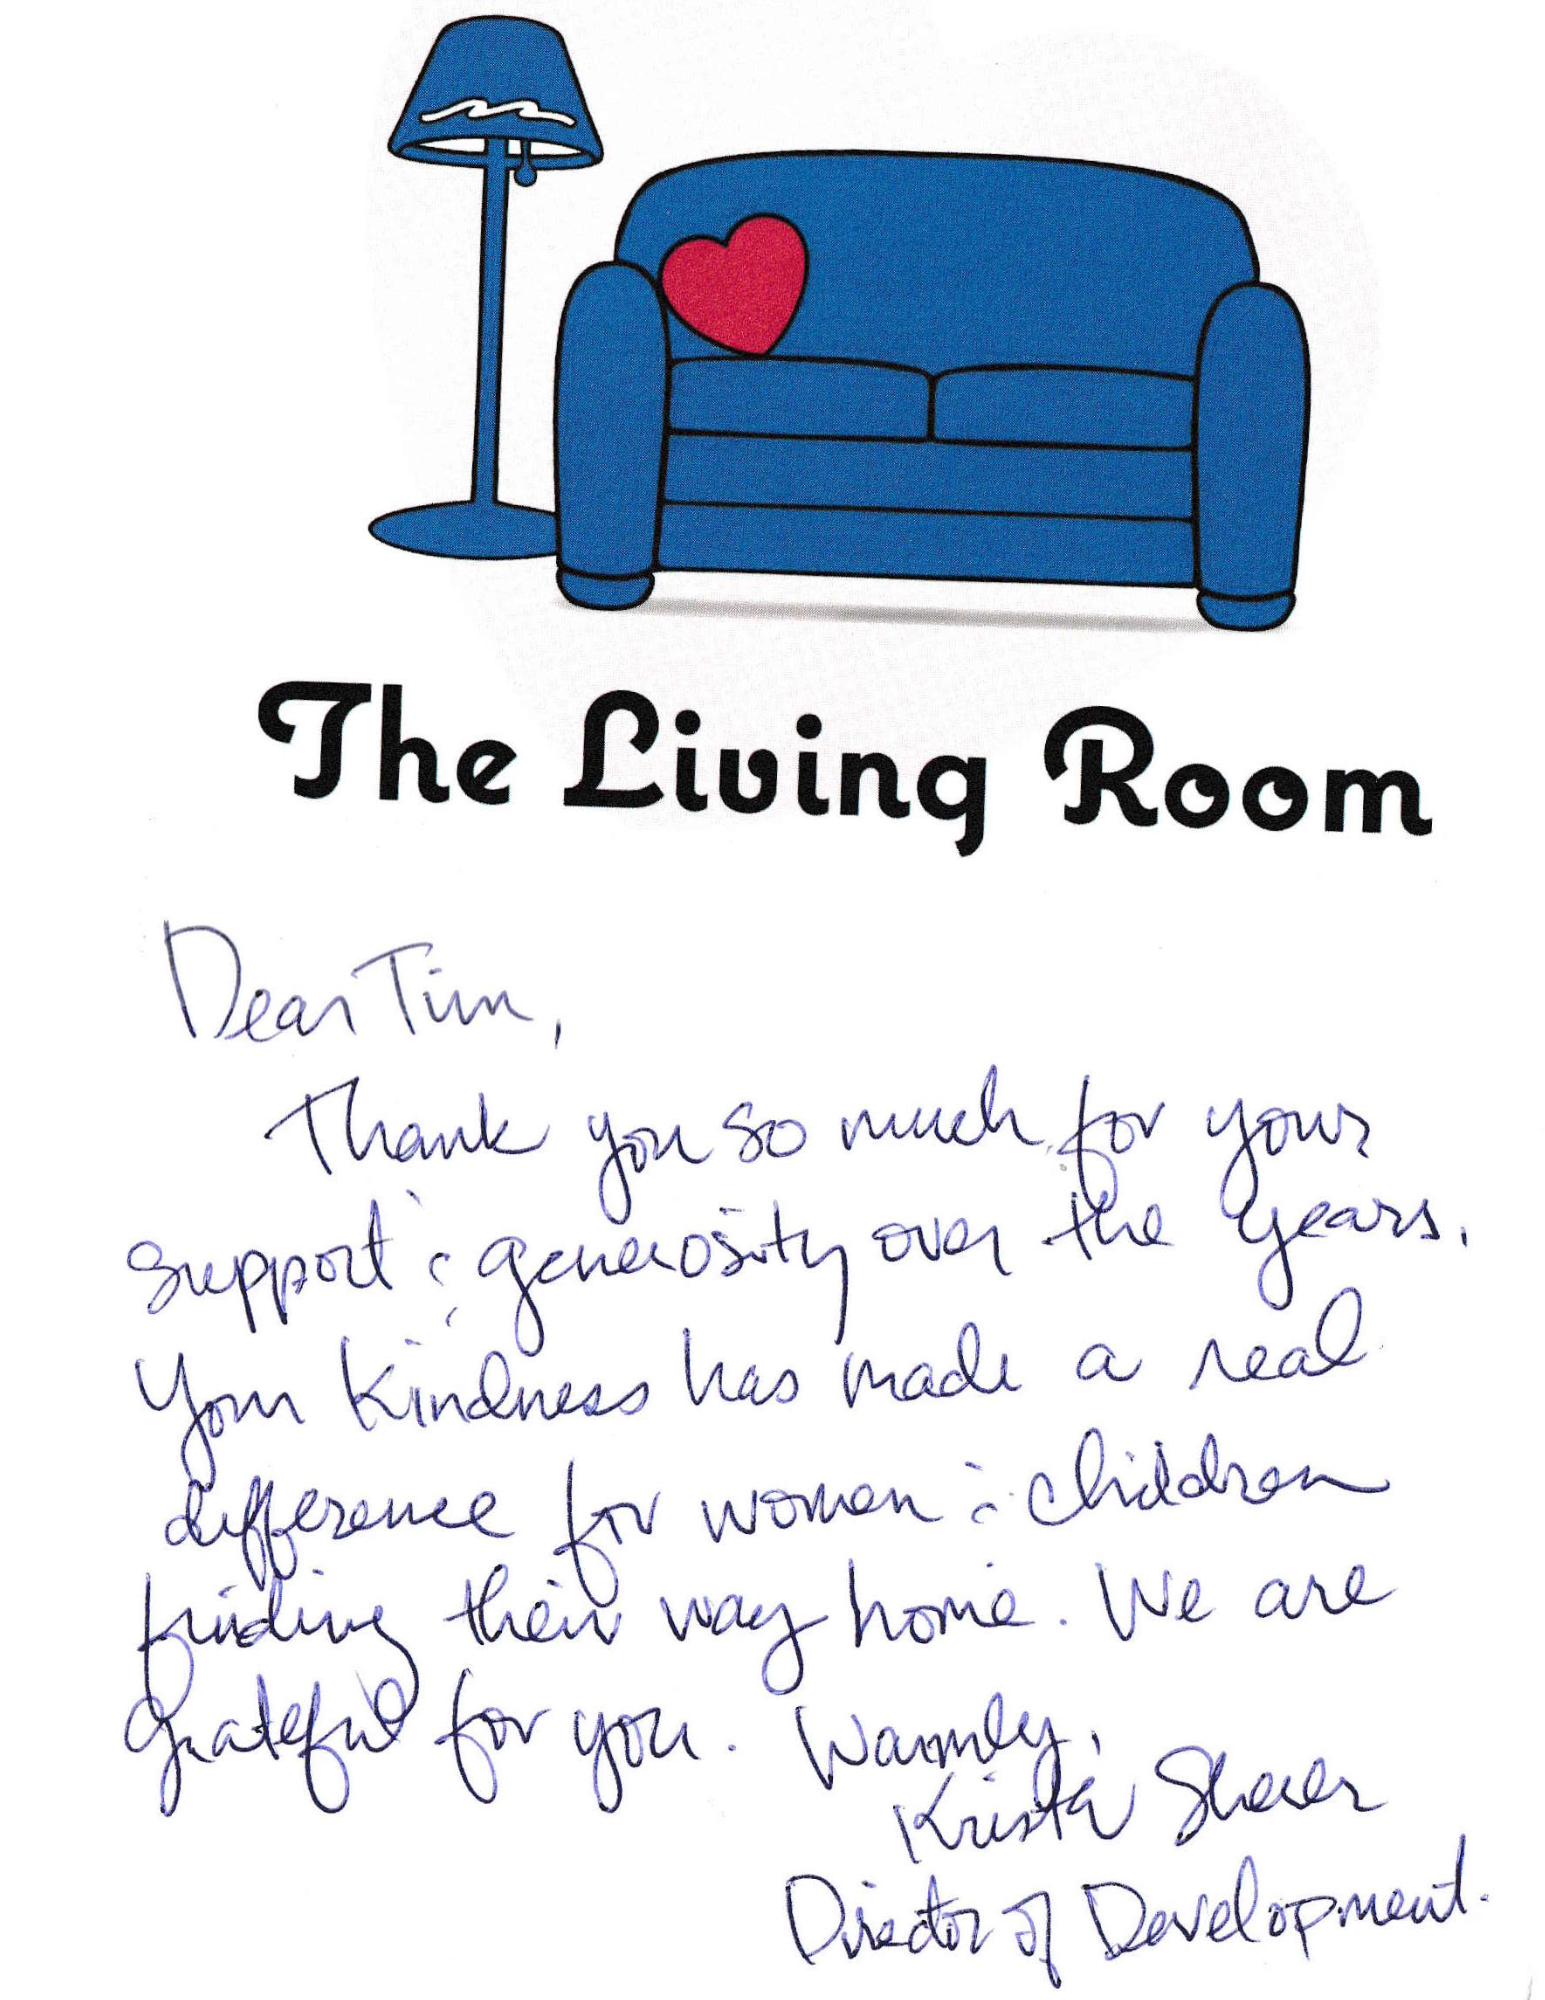 The Living Room
Dear Tim,
Thank you so much for your
support & generosity over the years.
Your kindness has made a real
difference for women & children
finding their way home. We are
grateful for you. Warmly,
Krista
Director of Development.